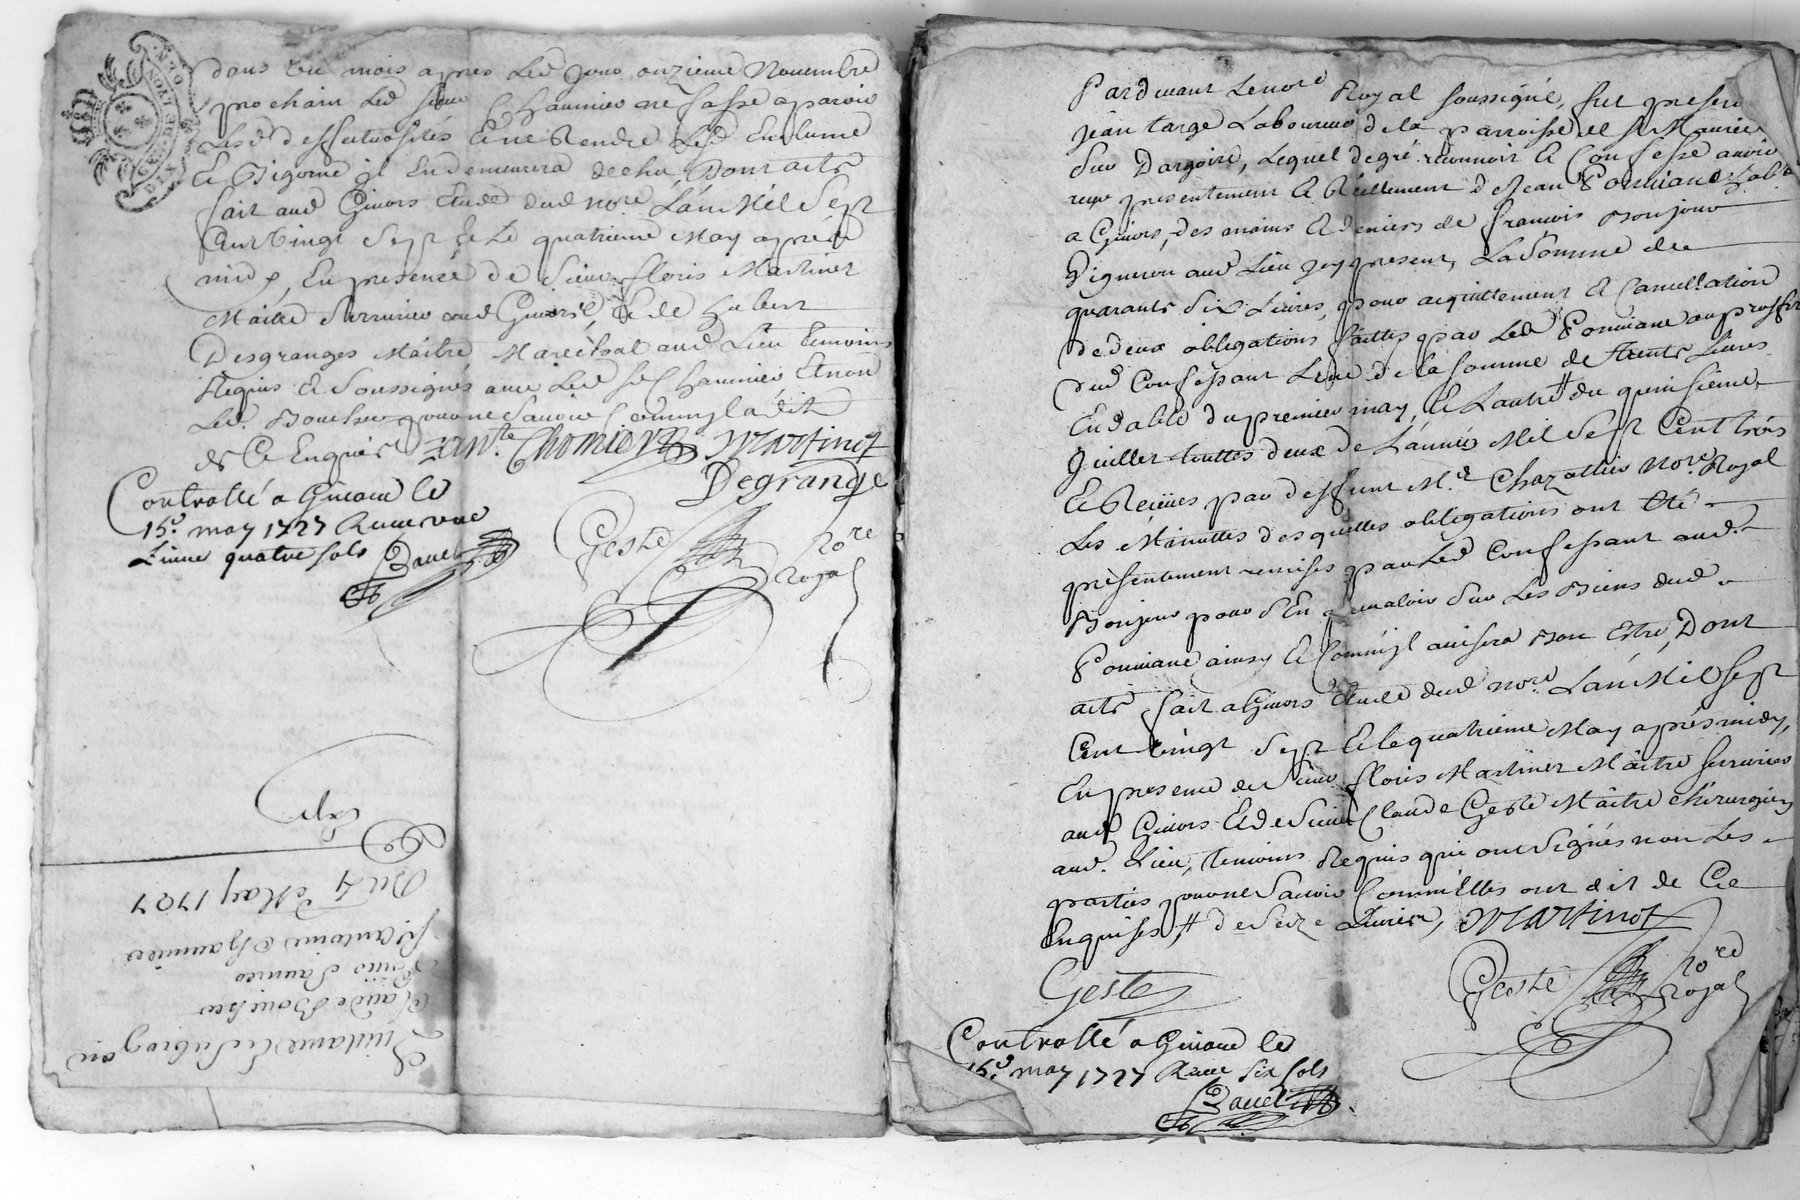 GENER. DE LYON
DIX
dans un mois apres led jour onzieme Novembre
prochain led sieur Chaumier ne fasse aparoir
desd deffectuosités Et ne Rendre led Enclume
Et Bigorne il En demeurera dechu, Dont acte
fait aud Givors Etude dud nore. L'an Mil Sept
Cent Vingt Sept Et Le quatrieme May après
midy, En presence de Sieur floris Martinet
Maitre Serrurier aud Givors, Et de hubert
Desgranges Maître Marechal aud Lieu temoins
Requis Et Soussignés avec led sr Chaumier, Et non
led. Boucher pour ne Savoir Comm'yl a dit
de Ce Enquis
ante. Chomier Martinot
Degrange
Controllé a Givord le
15e. may 1727 Receu une
Livre quatre sols
Geste
nore
Royal
Du 4 May 1727
sr antoine Chaumier
Claude Boucher
Quittance Et Subrogaon
Pardevant Le nore Royal soussigné, fut present
Jean targe Laboureur de la parroisse de St Maurice
Sur Dargoire, Lequel de gré reconnoit Et Confesse avoir
reçu presentement Et Réellement de Jean Pomiane
a Givors, des mains Et deniers de francois Bonjour
Vigneron aud Lieu jcy present, La Somme de
quarante Six Livres, pour acquittement Et Cancellation
de deux obligations faittes par led Pomiane au proffit
dud Confessant L'une de la somme de trente Livres
En datte du premier may, Et L'autre # du quinsieme
Juillet touttes deux de L'année Mil Sept Cent trois
Et Reçües par deffunt Me. Chazottier Nore. Royal
Les Minuttes desquelles obligations ont Eté
présentement remises par led Confessant aud.
Bonjour pour s'En prevaloir Sur Les Biens dud
Pomiane ainsy Et Comm'yl avisera Bon Estre, Dont
acte fait a Givors Etude dud Nore. L'an Mil Sept
Cent Vingt Sept Et le quatrieme May après midy,
En presence de Sieur floris Martinet Maître serrurier
aud Givors Et de Sieur Claude Geste Maître chirurgien
aud. Lieu, temoins Requis qui ont Signés non Les
parties pour ne Savoir Comm'Elles ont dit de Ce
Enquises, # de Seize Livres, Martinot
Geste
Geste nore
Royal
Controllé a Givord le
15e. may 1727 Receu six sols